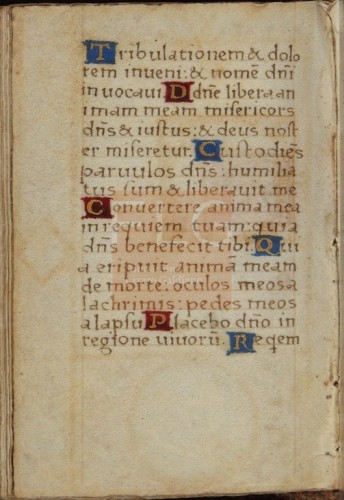 Tribulationem & dolo
rem inveni: & nomē dn̄i
invocavi D dn̄e libera an
imam meam misericors
dn̄s & iustus: & deus nost
er miseretur. Custodiēs
parvulos dn̄s: humilia
tus sum & liberavit me
Convertere anima mea
in requiem tuam: quia
dn̄s benefecit tibi. Qui
a eripuit animā meam
de morte: oculos meos a
lachrimis: pedes meos
a lapsu Placebo dn̄o in
regione vivorū. Reqem